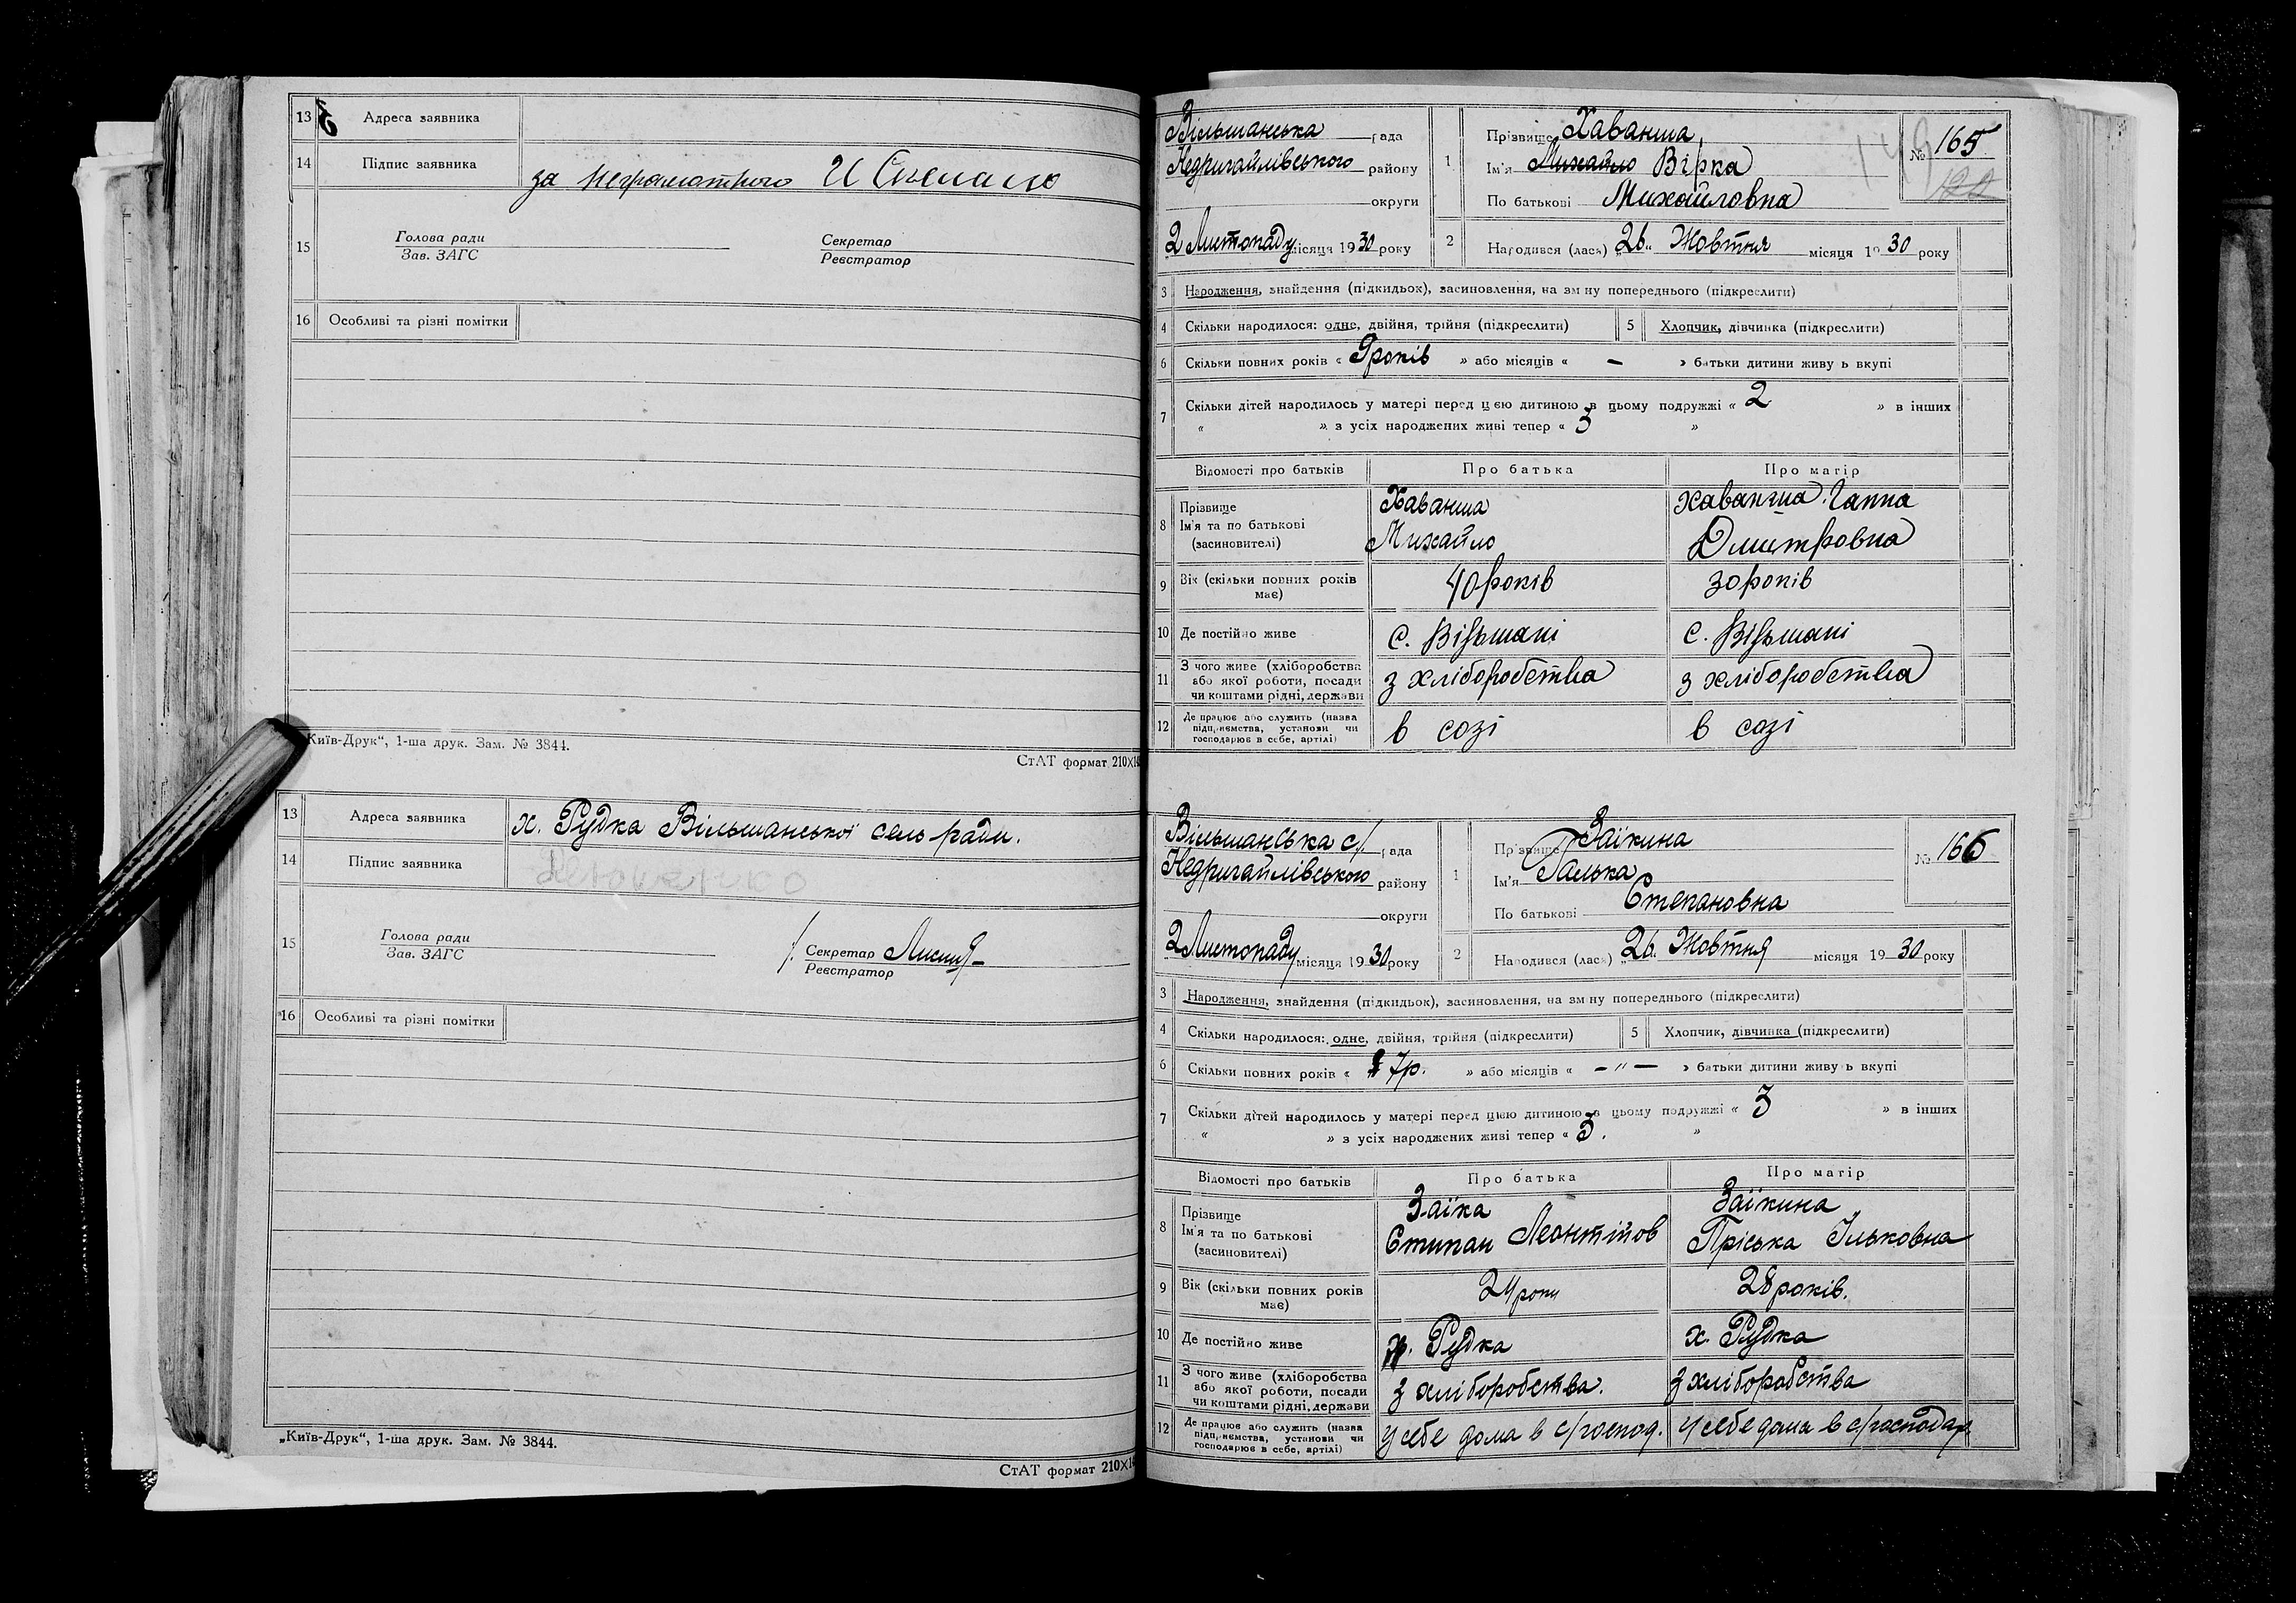 13 Адреса заявника
14 Підпис заявника за неграмотного И
15 Голова ради Секретар
Зав. ЗАГС Реєстратор
16 Особливі та різні помітки
Київ-Друк“, 1-ша друк. Зам. № 3844.
СтАТ формат 210X14
13 Адреса заявника х. Рудка Вільшанської сель ради.
14 Підпис заявника
15 Голова ради Секретар
Зав. ЗАГС Реєстратор
16 Особливі та різні помітки
„Київ-Друк“, 1-ша друк. Зам. № 3844.
СтАТ формат 210X14
Вільшанська рада
Недригайлівського району
округи
2 Листопаду місяця 1930 року
1 Прізвище Хаванша
Ім'я Михайло Вірка
По батькові Михайловна
№ 165
2 Народився (лася) „26„ Жовтня місяця 1930 року
3 Народження, знайдення (підкидьок), засиновлення, на зміну попереднього (підкреслити)
4 Скільки народилося: одне, двійня, трійня (підкреслити) 5 Хлопчик, дівчинка (підкреслити)
6 Скільки повних років « 9років » або місяців « — » батьки дитини живуть вкупі
7 Скільки дітей народилось у матері перед цією дитиною в цьому подружжі « 2 » в інших
« » з усіх народжених живі тепер « 3 »
Відомості про батьків Про батька Про матір
8 Прізвище Хаванша Хаванша Ганна
Ім'я та по батькові Михайло Дмитровна
(засиновителі)
9 Вік (скільки повних років має) 40років 30років
10 Де постійно живе с. Вільшані с. Вільшані
11 З чого живе (хліборобства
або якої роботи, посади з хліборобства з хліборобства
чи коштами рідні, держави
12 Де працює або служить (назва
підприємства, установи чи в созі в созі
господарює в себе, артілі)
Вільшанська с/ рада
Недригайлівського району
округи
2 Листопаду місяця 1930 року
1 Прізвище Заїкина
Ім'я Галька
По батькові Степановна
№ 166
2 Народився (лася) „26. Жовтня місяця 1930 року
3 Народження, знайдення (підкидьок), засиновлення, на зміну попереднього (підкреслити)
4 Скільки народилося: одне, двійня, трійня (підкреслити) 5 Хлопчик, дівчинка (підкреслити)
6 Скільки повних років « 7р. » або місяців « — " — » батьки дитини живуть вкупі
7 Скільки дітей народилось у матері перед цією дитиною в цьому подружжі « 3 » в інших
« » з усіх народжених живі тепер « 3. »
Відомості про батьків Про батька Про матір
8 Прізвище Заїка Заїкина
Ім'я та по батькові Степан Леонтійов Пріська Ільковна
(засиновителі)
9 Вік (скільки повних років має) 24роки 28років.
10 Де постійно живе х. Рудка х. Рудка
11 З чого живе (хліборобства
або якої роботи, посади з хліборобства. з хліборобства
чи коштами рідні, держави
12 Де працює або служить (назва
підприємства, установи чи у себе дома в с/господ. у себе дома в с/господар.
господарює в себе, артілі)